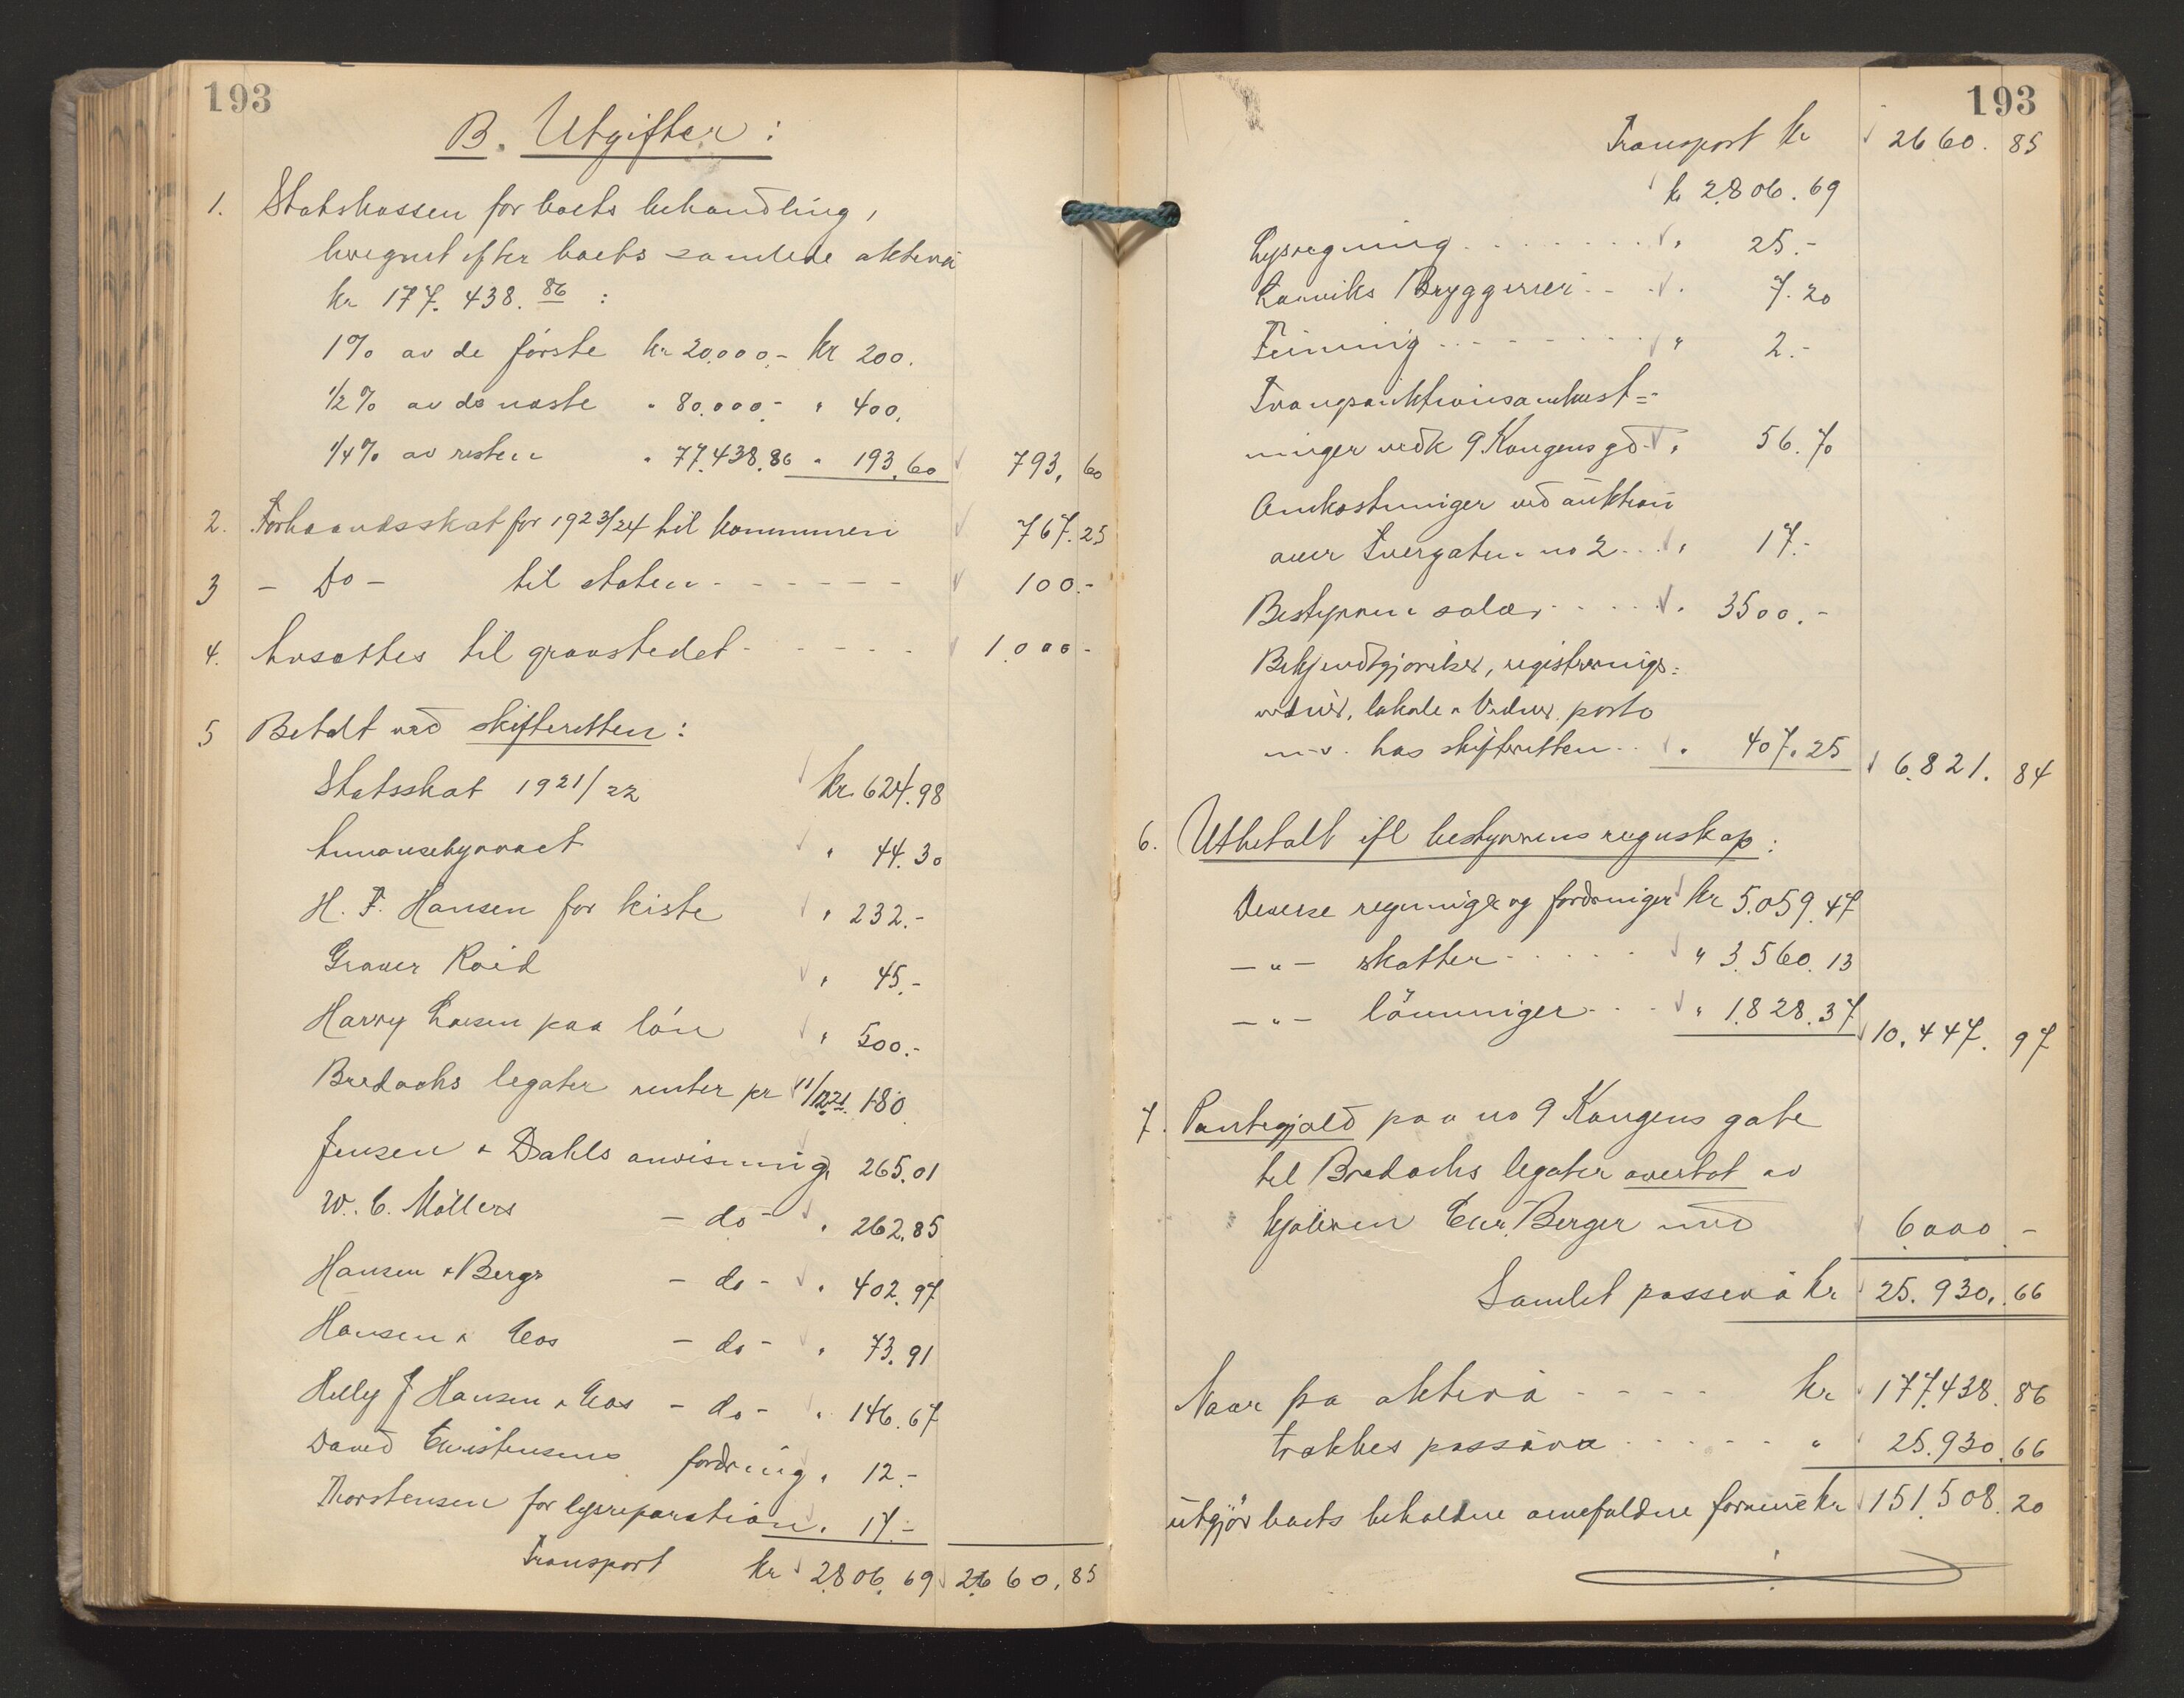 193
B. Utgifter:
1. Statskassen for boets behandling,
beregnet efter boets samlede aktiva
kr 177.438.86 :
1% av de første kr 20.000,- kr 200.
1/2% av de næste " 80.000- " 400.
1/4% av resten " 77.438.86 " 193.60 793.60
2. Forhaandsskat for 1923/24 til kommunen 767.25
3 - Do - til staten - - - - - - 100.-
4. Avsættes til gravstedet - - - - - 1.000-
5 Betalt ved skifteretten:
Statsskat 1921/22 kr. 624.98
Annonsebyraaet " 44.30
H. F. Hansen for kiste " 232.-
Graver Roid " 45.-
Harry Larsen paa lön " 500.-
Bredochs legater renter pr 11/12 21. 180.
Jensen & Dahls anvisning " 265.01
W. C. Möllers - do - " 262.85
Hansen & Bergs - do - " 402.97
Hansen & Cos - do - " 73.91
Helly J Hansen & Cos - do - " 146.67
David Christensens fordring " 12.-
Thorstensen for lysreparation " 17.-
Transport kr 2806.69 2660.85
193
Transport kr 2660.85
kr 2.806.69
Lysregning - - - - " 25.-
Larviks Bryggerier - - " 7.20
Tinning - - - - " 2.-
Tvangsauktionsomkost=
ninger vedk 9 Kongens gd. " 56.70
Omkostninger ved auktion
over Tvergaten no 2 - - " 17.-
Bestyrerens salær - - - - " 3500.-
Bekjendtgjörelser, registrerings=
vidner, lokale & Vidner, porto
m.v. hos skifteretten - - " 407.25 6.821.84
6. Utbetalt ifl bestyrerens regnskap:
Diverse regninger og fordringer kr 5.059.47
- " - skatter - - - - - " 3.560.13
- " - lönninger - - - " 1.828.37 10.447.97
7. Pantegjæld paa no 9 Kongens gate
til Bredochs legater overtat av
kjöperen Chr. Berger med 6000.-
Samlet passiva kr 25.930.66
Naar fra aktiva - - - - kr 177.438.86
trækkes passiva - - - - - " 25.930.66
utgjör boets beholdne arvefaldne formue kr 151.508.20